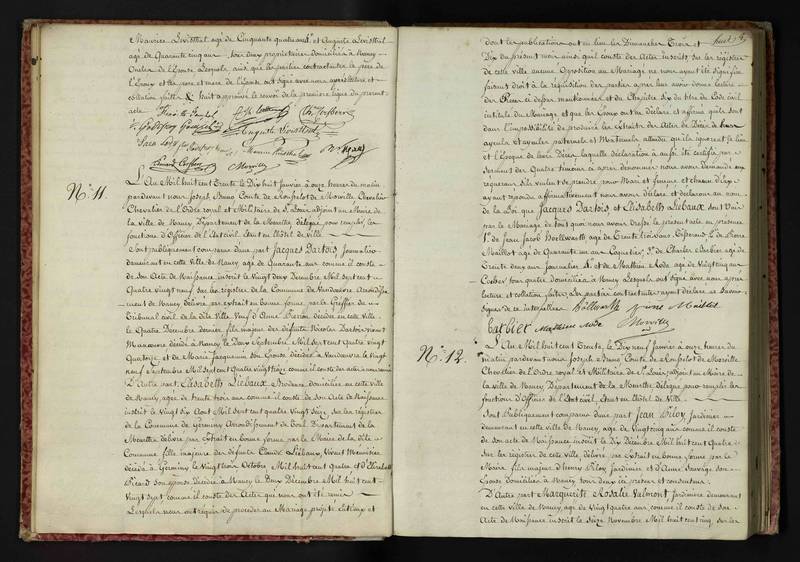 Maurice Levisthal agé de Cinquante quatre ans et Auguste Levisthal
agé de Quarante cinq ans, tous deux propriétaires domiciliés à Nancy
Oncles de l'Epouse Lesquels, ainsi que les parties contractantes le père de
l'Epoux et les père et mère de l'Epouse ont signé avec nous après lecture et
collation faites & huit approuvé le renvoi de la première ligne du présent
acte
Auguste Levisthal
Morville
N.° 11.
L'An Mil huit cent Trente le Dix huit Janvier à onze heures du matin
pardevant nous Joseph Bruno Comte de Rouselot de Morville, Chevalier
Chevalier de l'Ordre royal et Militaire de St Louis, adjoint au Maire de
la ville de Nancy, Département de la Meurthe, délégué pour remplir les
fonctions d'Officier de l'Etat civil, étant en l'hôtel de Ville
Sont publiquement comparus d'une part Jacques Dartois, Journalier
demeurant en cette Ville de Nancy, agé de Quarante ans comme il conste
de son Acte de Naissance inscrit le Vingt deux Décembre Mil sept cent
quatre vingt neuf sur les registres de la Commune de Vandœuvre Arrondisse-
ment de Nancy délivré par extrait en bonne forme par le Greffier du
Tribunal civil de la dite Ville, Veuf d'Anne décédée en cette Ville
le Quatre Décembre dernier, fils majeur des défunts Nicolas Dartois vivant
Manœuvre décédé à Nancy le Douze Septembre Mil Sept cent quatre Vingt
Quatorze et de Marie Jacquemin son Epouse décédée à Vandœuvre le Vingt
neuf Septembre Mil sept cent quatre vingt treize comme il conste des actes à nous remis
D'Autre part, Elisabeth Liébaux Brodeuse domiciliée en cette ville
de Nancy, agée de trente trois ans comme il conste de son Acte de Naissance
inscrit le Vingt six Aout Mil sept cent quatre vingt Seize sur les registres
de la Commune de Germiny Arrondissement de Toul Département de la
Meurthe délivré par Extrait en bonne forme par le Maire de la dite
Commune fille majeure des défunts Claude Liébaux, Vivant Menuisier
décédé à Germiny le Vingt trois Octobre Mil huit cent Quatre et d'Elisabeth
Picard son épouse décédée à Nancy le Deux Décembre Mil huit cent
Vingt sept comme il conste des Actes qui nous ont été remis
Lesquels nous ont requis de procéder au Mariage projeté entr'eux et
huit
dont les publications ont eu lieu les Dimanches Trois et
Dix du présent mois ainsi qu'il conste des Actes inscrits sur les registres
de cette ville aucune Opposition au Mariage ne nous ayant été signifiée
faisant droit à la réquisition des parties après leur avoir donné lecture
des Pièces ci dessus mentionnées et du Chapitre six du titre du Code civil
intitulé du Mariage, et que les Epoux ont eu déclaré et affirmé qu'ils sont
dans l'impossibilité de produire les Extraits des Actes de Décès de leurs
ayeuls et ayeules paternels et Maternels attendu qu'ils ignorent le lieu
et l'Epoque de leurs Décès laquelle déclaration a aussi été certifiée par
serment des Quatre témoins ci après dénommés nous avons demandé aux
requérans s'ils veulent se prendre pour Mari et femme et chacun d'eux
ayant répondu affirmativement nous avons déclaré et déclarons au nom
de la Loi que Jacques Dartois, et Elisabeth Liébaux sont Unis
par le Mariage de tout quoi nous avons dressé le présent acte en présence
1.° de Jean Jacob Bollwarth agé de Trente trois ans, 2.° de Pierre
Maillet agé de Quarante un ans Coquetier, 3.° de Charles Barbier agé de
Trente deux ans Journalier, 4.° et de Mathieu Aode agé de Vingt cinq ans
Cocher tous quatre domiciliés à Nancy Lesquels ont signé avec nous après
lecture et collation faites; Les parties contractantes ayant déclaré ne Savoir
Signer de ce interpellées
Bollwarth Pierre Maillet
Barbier Mathieu Aode Morville
N.° 12.
L'An Mil huit cent Trente, le Dix neuf Janvier à onze heures du
matin pardevant nous Joseph Bruno Comte de Rouselot de Morville
Chevalier de l'Ordre royal et Militaire de St Louis, adjoint au Maire de
la ville de Nancy, Département de la Meurthe, délégué pour remplir les
fonctions d'Officier de l'Etat civil, étant en l'hôtel de Ville
Sont Publiquement comparus d'une part Jean Piloy Jardinier
demeurant en cette ville de Nancy, agé de Vingt cinq ans comme il conste
de son acte de Naissance inscrit le Dix Décembre Mil huit cent Quatre
sur les registres de cette ville, délivré par extrait en bonne forme par le
Maire, fils majeur d'Henry Piloy Jardinier et d'Anne Sauvage son
Epouse domiciliés à Nancy tous deux ici présens et consentans
D'Autre part Marguerite Rosalie Valmont, Jardinière demeurant
en cette ville de Nancy, agée de Vingt quatre ans comme il conste de son
Acte de Naissance inscrit le Seize Novembre Mil huit cent cinq sur les